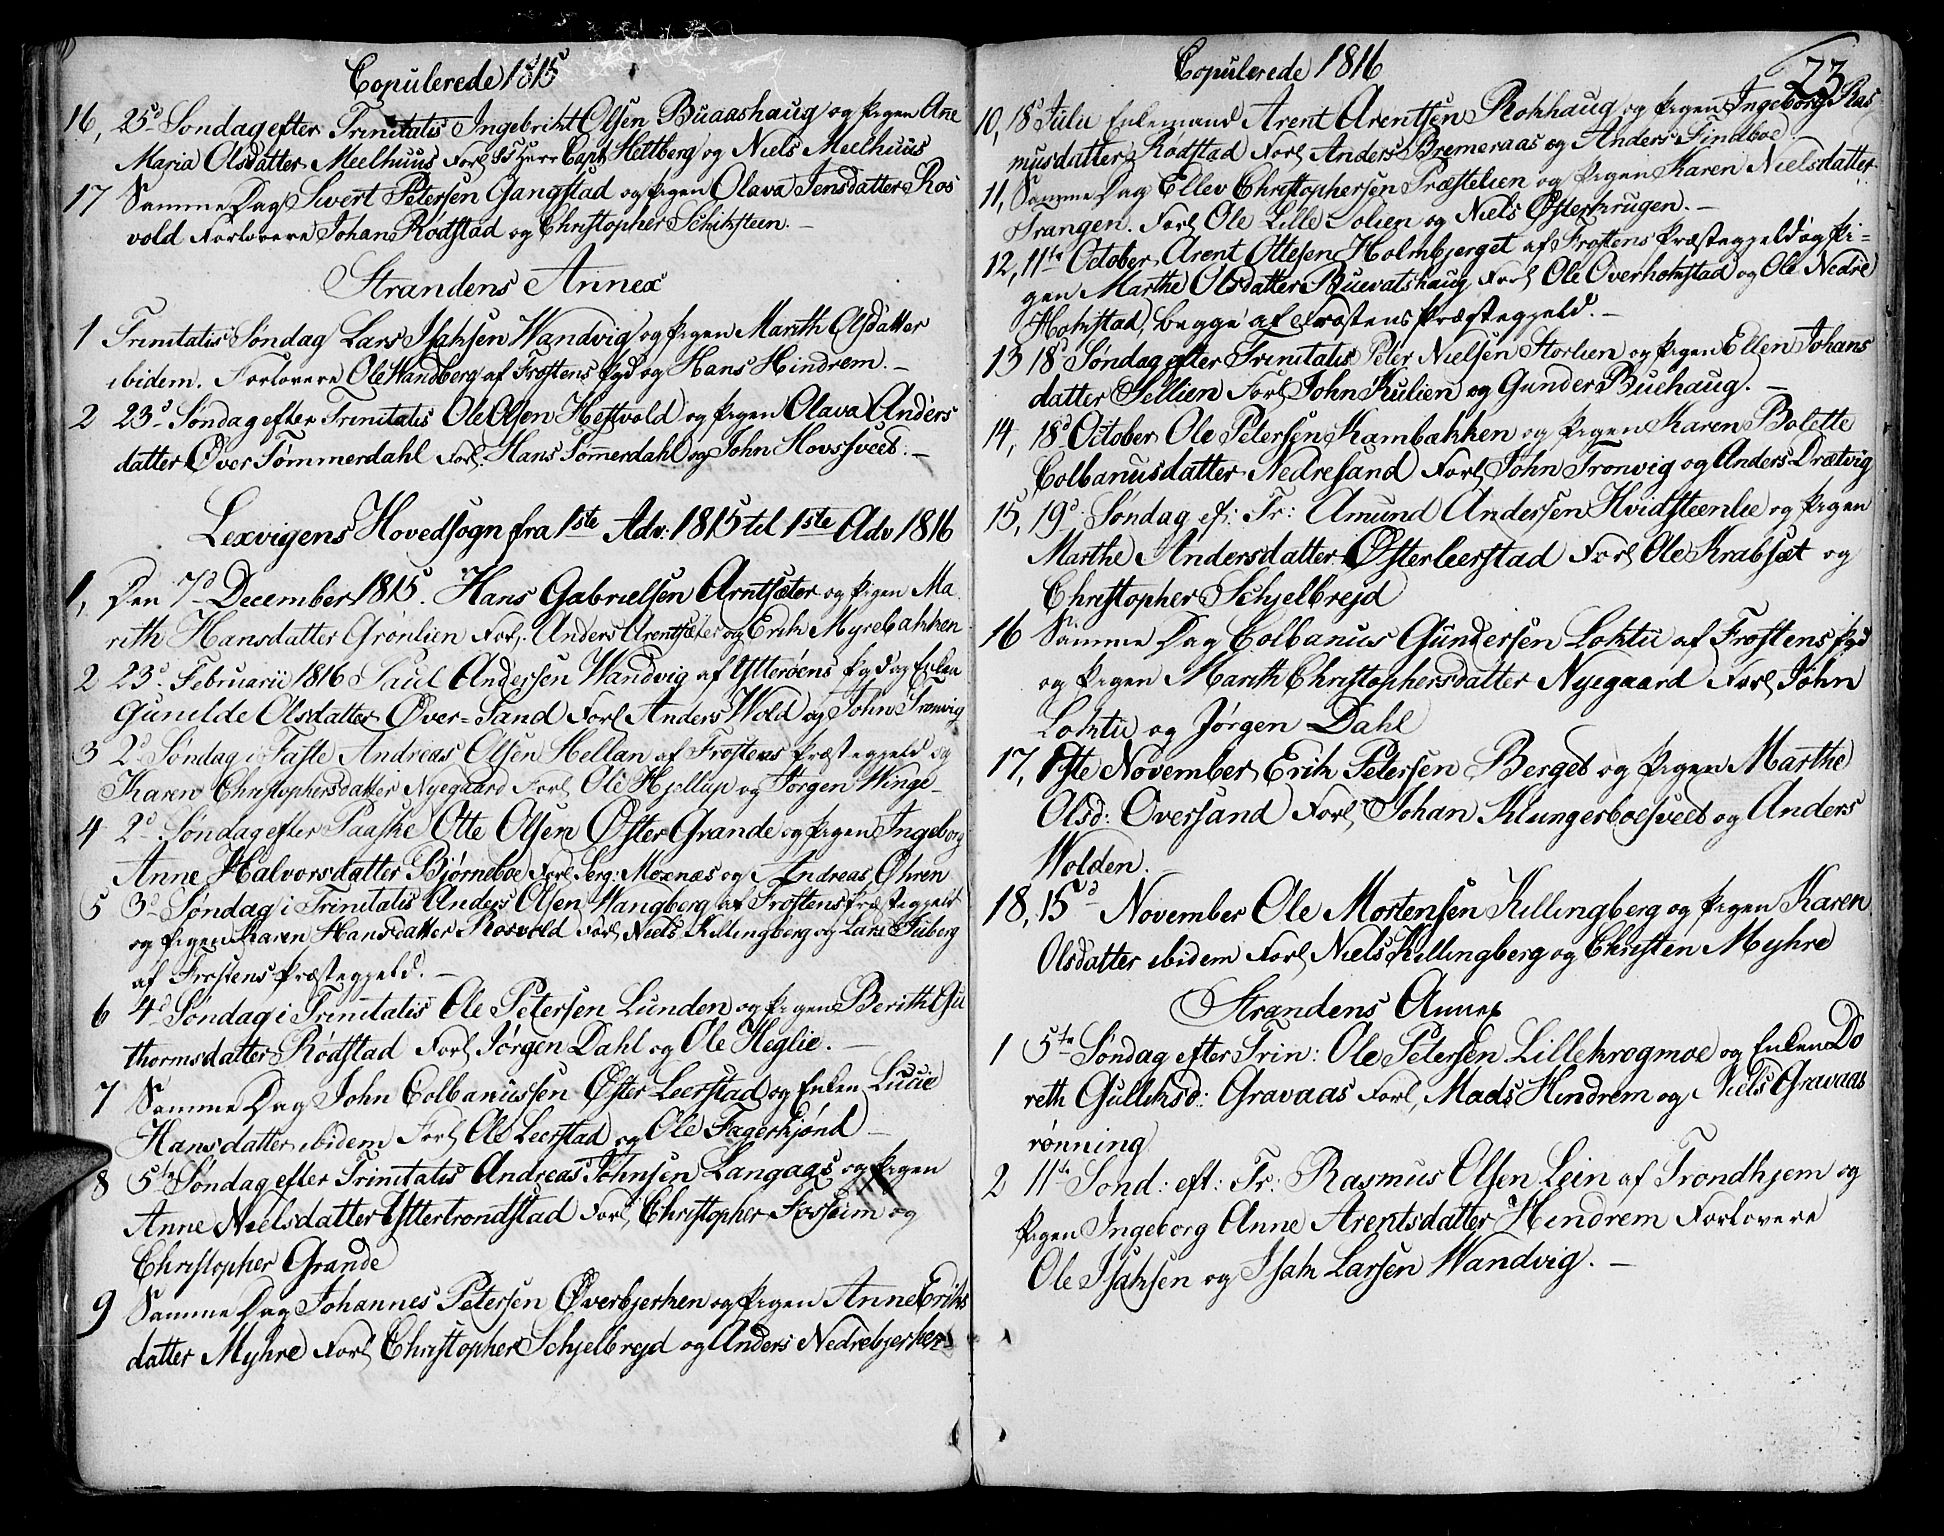 Copulerede 1815
16, 25d Søndag efter Trinitatis Ingebricht Olsen Buaashaug og Pigen Ane
Maria Olsdatter Meelhuus Forl SS Herr Capt Hettberg og Niels Meelhuus
17 Samme Dag Sivert Petersen Gangstad og Pigen Olava Jensdatter Ros
vold Forlovere Johan Rødstad og Christopher Schitsteen. –
Strandens Annex
1 Trinitatis Søndag Lars Isaksen Wandvig og Pigen Marith Olsdatter
ibidem. Forlovere Ole Wandberg af Frostens Pgd og Hans Hindrem. –
2 23d Søndag efter Trinitatis Ole Olsen Hestvold og Pigen Olava Anders
datter Over Tømmerdahl Forl. Hans Tømerdahl og John Hovssveet. –
Lexvigens Hovedsogn fra 1ste Adv: 1815 til 1ste Adv 1816
1, Den 7d December 1815. Hans Gabrielsen Arntsæter og Pigen Ma
rith Hansdatter Grønlien Forl: Anders Arentsæter og Erik Myrebakken
2 23d Februarii 1816 Paul Andersen Wandvig af Ytterøens Pgd og Enken
Gunilde Olsdatter Over=Sand Forl Anders Wold og John Tronvig
3 2d Søndag i Faste Andreas Olsen Hellan af Frostens Præstegjeld og
Karen Christophersdatter Nyegaard Forl Ole Hjellup og Jørgen Winge –
4 2d Søndag efter Paaske Otte Olsen Øster Grande og Pigen Ingeborg
Anne Halvorsdatter Bjørneboe Forl Serg: Moxnæs og Andreas Øhren
5 3d Søndag i Trinitatis Anders Olsen Wangberg af Frostens Præstegjeld
og Pigen Karen Hansdatter Rosvold Forl Niels Killingberg og Lars Viberg
af Frostens Præstegjeld. –
6 4d Søndag i Trinitatis Ole Petersen Lunden og Pigen Berith Gu
thormsdatter Rødstad Forl Jørgen Dahl og Ole Heglie. –
7 Samme Dag John Colbanussen Øster Leerstad og Enken Lucie
Hansdatter ibidem Forl Ole Leerstad og Ole Fagerkjønd –
8 5te Søndag efter Trinitatis Andreas Johnsen Langaas og Pigen
Anne Nielsdatter Yttertrondstad Forl, Christopher Fosseim og
Christopher Grande
9 Samme Dag Johannes Petersen Overbjerken og Pigen Anne Eriks
datter Myhre Forl Christopher Schjelbrejd og Anders Nedrebjerken
Copulerede 1816
23
10, 18d Julii Enkemand Arent Arentsen Rokhaug og Pigen Ingeborg Ras
musdatter Rødstad Forl Anders Bremeraas og Anders Findboe –
11, Samme Dag Ellev Christophersen Præstelien og Pigen Karen Nielsdatter
Trangen. Forl Ole Lille Solien og Niels Østerkrugen. –
12, 11te October Arent Ottesen Holmbjerget af Frostens Præstegjeld og Pi=
gen Marthe Olsdatter Buevatshaug Forl Ole Overholmstad og Ole Nedre
Holmstad, begge af Frostens Præstegjeld. –
13 18d Søndag efter Trinitatis Peter Nielsen Storlien og Pigen Ellen Johans
datter Sellien Forl John Kulien og Gunder Buehaug. –
14, 18d October Ole Petersen Kambakken og Pigen Karen Bolette
Colbanusdatter Nedresand Forl John Tronvig og Anders Drætvig
15, 19d Søndag ef: Tr: Amund Andersen Hvidsteenlie og Pigen
Marthe Andersdatter Østerleerstad Forl Ole Krabsæt og
Christopher Schjelbrejd
16 Samme Dag Colbanus Gundersen Loktu af Frostens Pgd
og Pigen Marith Christophersdatter Nyegaard Forl John
Loktu og Jørgen Dahl
17, 1ste November Erik Petersen Berget og Pigen Marthe
Olsd: Oversand Forl, Johan Klungerboesveet og Anders
Wolden.
18, 15d November Ole Mortensen Killingberg og Pigen Karen
Olsdatter ibidem Forl Niels Killingberg og Christen Myhre
Strandens Annex
1 5te Søndag efter Trin: Ole Petersen Lillekrogmoe og Enken Do
reth Gulliksd: Gravaas Forl, Mads Hindrem og Niels Gravaas
rønning
2 11te Sønd: eft: Tr: Rasmus Olsen Lein af Trondhjem og
Pigen Ingeborg Anne Arentsdatter Hindrem Forlovere
Ole Isaksen og Isak Larsen Wandvig. –